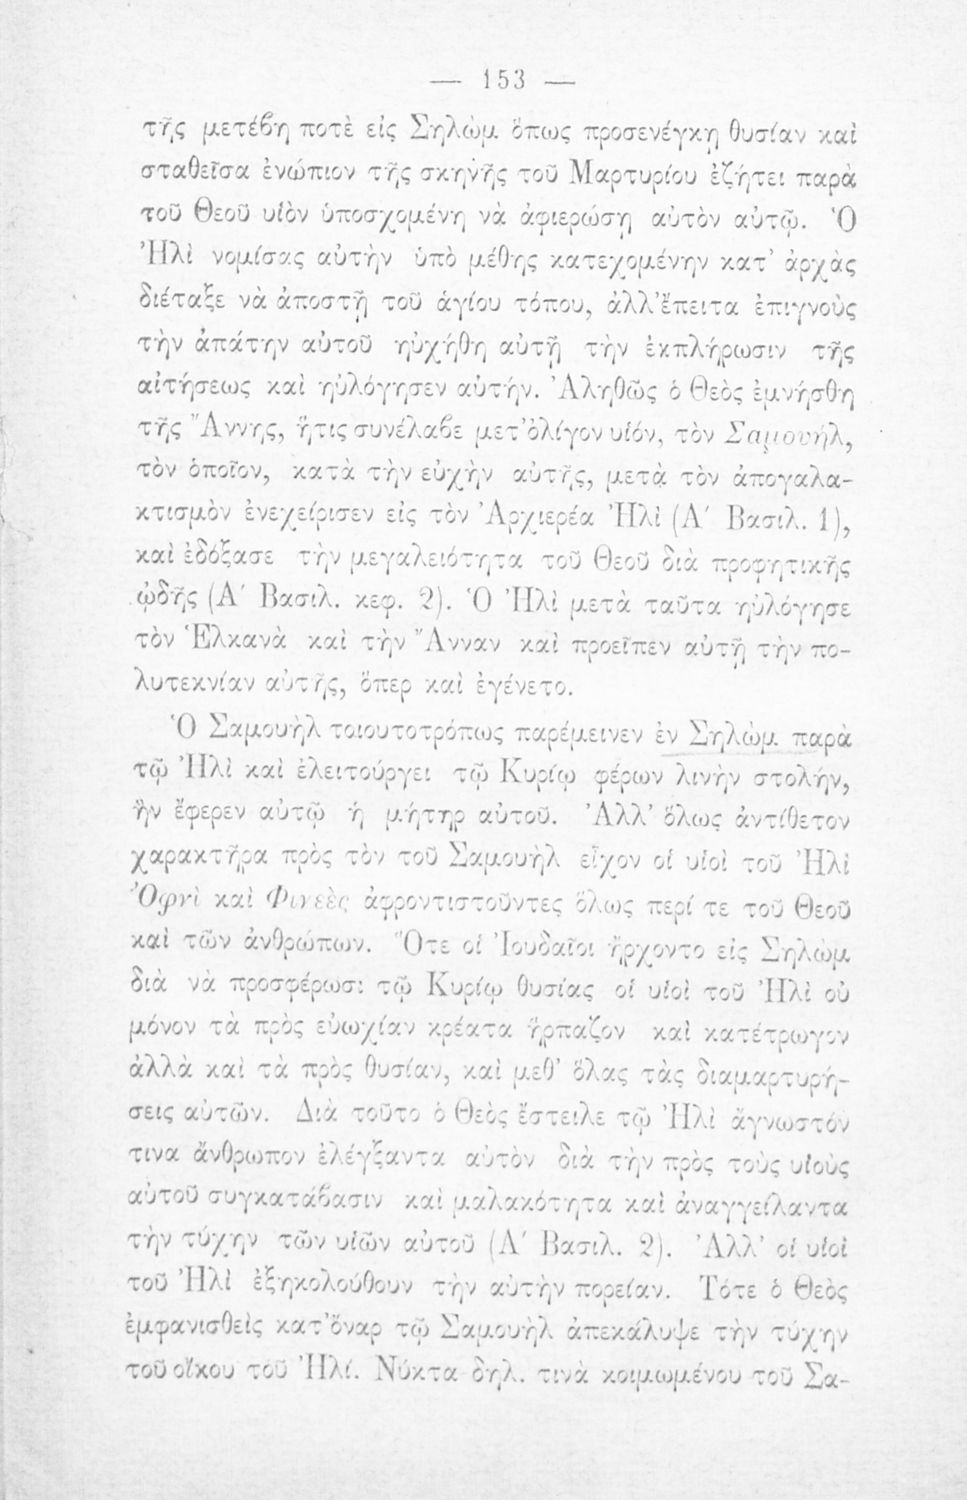 — 153 —
τῆς μετέβη ποτὲ εἰς Σηλὼμ ὅπως προσενέγκῃ θυσίαν καὶ
σταθεῖσα ἐνώπιον τῆς σκηνῆς τοῦ Μαρτυρίου ἐζήτει παρὰ
τοῦ Θεοῦ υἱὸν ὑποσχομένη νὰ ἀφιερώσῃ αὐτὸν αὐτῷ. Ὁ
Ἠλὶ νομίσας αὐτὴν ὑπὸ μέθης κατεχομένην κατ' ἀρχὰς
διέταξε νὰ ἀποστῇ τοῦ ἁγίου τόπου, ἀλλ' ἔπειτα ἐπιγνοὺς
τὴν ἀπάτην αὐτοῦ ηὐχήθη αὐτῇ τὴν ἐκπλήρωσιν τῆς
αἰτήσεως καὶ ηὐλόγησεν αὐτήν. Ἀληθῶς ὁ Θεὸς ἐμνήσθη
τῆς Ἄννης, ἥτις συνέλαβε μετ' ὀλίγον υἱόν, τὸν Σαμουήλ,
τὸν ὁποῖον, κατὰ τὴν εὐχὴν αὐτῆς, μετὰ τὸν ἀπογαλα-
κτισμὸν ἐνεχείρισεν εἰς τὸν Ἀρχιερέα Ἠλὶ (Α' Βασιλ. 1),
καὶ ἐδόξασε τὴν μεγαλειότητα τοῦ Θεοῦ διὰ προφητικῆς
ᾠδῆς (Α' Βασιλ. κεφ. 2). Ὁ Ἠλὶ μετὰ ταῦτα ηὐλόγησε
τὸν Ἑλκανὰ καὶ τὴν Ἄνναν καὶ προεῖπεν αὐτῇ τὴν πο-
λυτεκνίαν αὐτῆς, ὅπερ καὶ ἐγένετο.
Ὁ Σαμουὴλ τοιουτοτρόπως παρέμεινεν ἐν Σηλὼμ παρὰ
τῷ Ἠλὶ καὶ ἐλειτούργει τῷ Κυρίῳ φέρων λινὴν στολήν,
ἣν ἔφερεν αὐτῷ ἡ μήτηρ αὐτοῦ. Ἀλλ' ὅλως ἀντίθετον
χαρακτῆρα πρὸς τὸν τοῦ Σαμουὴλ εἶχον οἱ υἱοὶ τοῦ Ἠλὶ
Ὀφνὶ καὶ Φινεὲς ἀφροντιστοῦντες ὅλως περί τε τοῦ Θεοῦ
καὶ τῶν ἀνθρώπων. Ὅτε οἱ Ἰουδαῖοι ἤρχοντο εἰς Σηλὼμ
διὰ νὰ προσφέρωσι τῷ Κυρίῳ θυσίας οἱ υἱοὶ τοῦ Ἠλὶ οὐ
μόνον τὰ πρὸς εὐωχίαν κρέατα ἥρπαζον καὶ κατέτρωγον
ἀλλὰ καὶ τὰ πρὸς θυσίαν, καὶ μεθ' ὅλας τὰς διαμαρτυρή-
σεις αὐτῶν. Διὰ τοῦτο ὁ Θεὸς ἔστειλε τῷ Ἠλὶ ἄγνωστόν
τινα ἄνθρωπον ἐλέγξαντα αὐτὸν διὰ τὴν πρὸς τοὺς υἱοὺς
αὐτοῦ συγκατάβασιν καὶ μαλακότητα καὶ ἀναγγείλαντα
τὴν τύχην τῶν υἱῶν αὐτοῦ (Α' Βασιλ. 2). Ἀλλ' οἱ υἱοὶ
τοῦ Ἠλὶ ἐξηκολούθουν τὴν αὐτὴν πορείαν. Τότε ὁ Θεὸς
ἐμφανισθεὶς κατ' ὄναρ τῷ Σαμουὴλ ἀπεκάλυψε τὴν τύχην
τοῦ οἴκου τοῦ Ἠλί. Νύκτα δηλ. τινὰ κοιμωμένου τοῦ Σα-